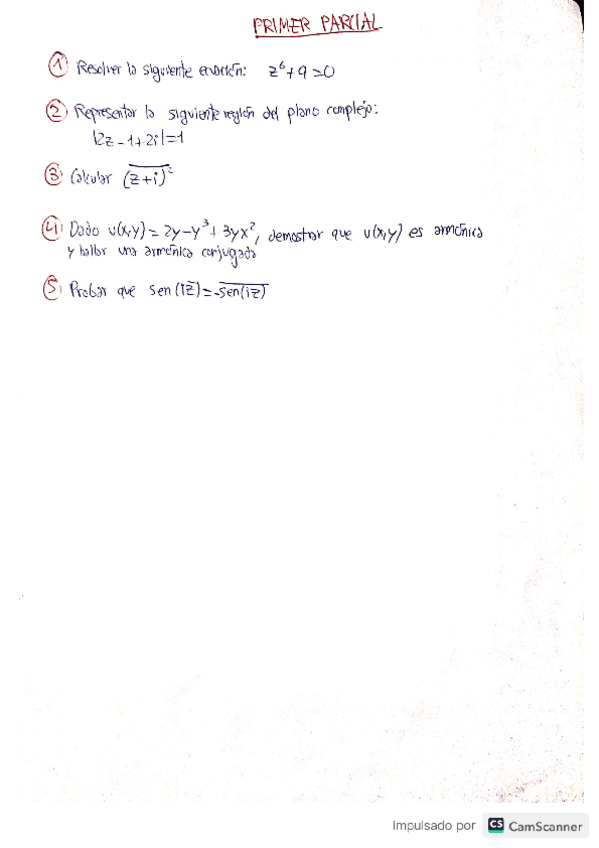 PRIMER PARCIAL
① Resolver la siguiente ecuación: z⁶+9=0
② Representar la siguiente región del plano complejo:
|2z-1+2i|=1
③ Calcular (z+i)²
④ Dado u(x,y)=2y-y³+3yx², demostrar que u(x,y) es armónica
y hallar una armónica conjugada
⑤ Probar que sen(iz̅)=-s̅e̅n̅(̅i̅z̅)̅
Impulsado por CS CamScanner